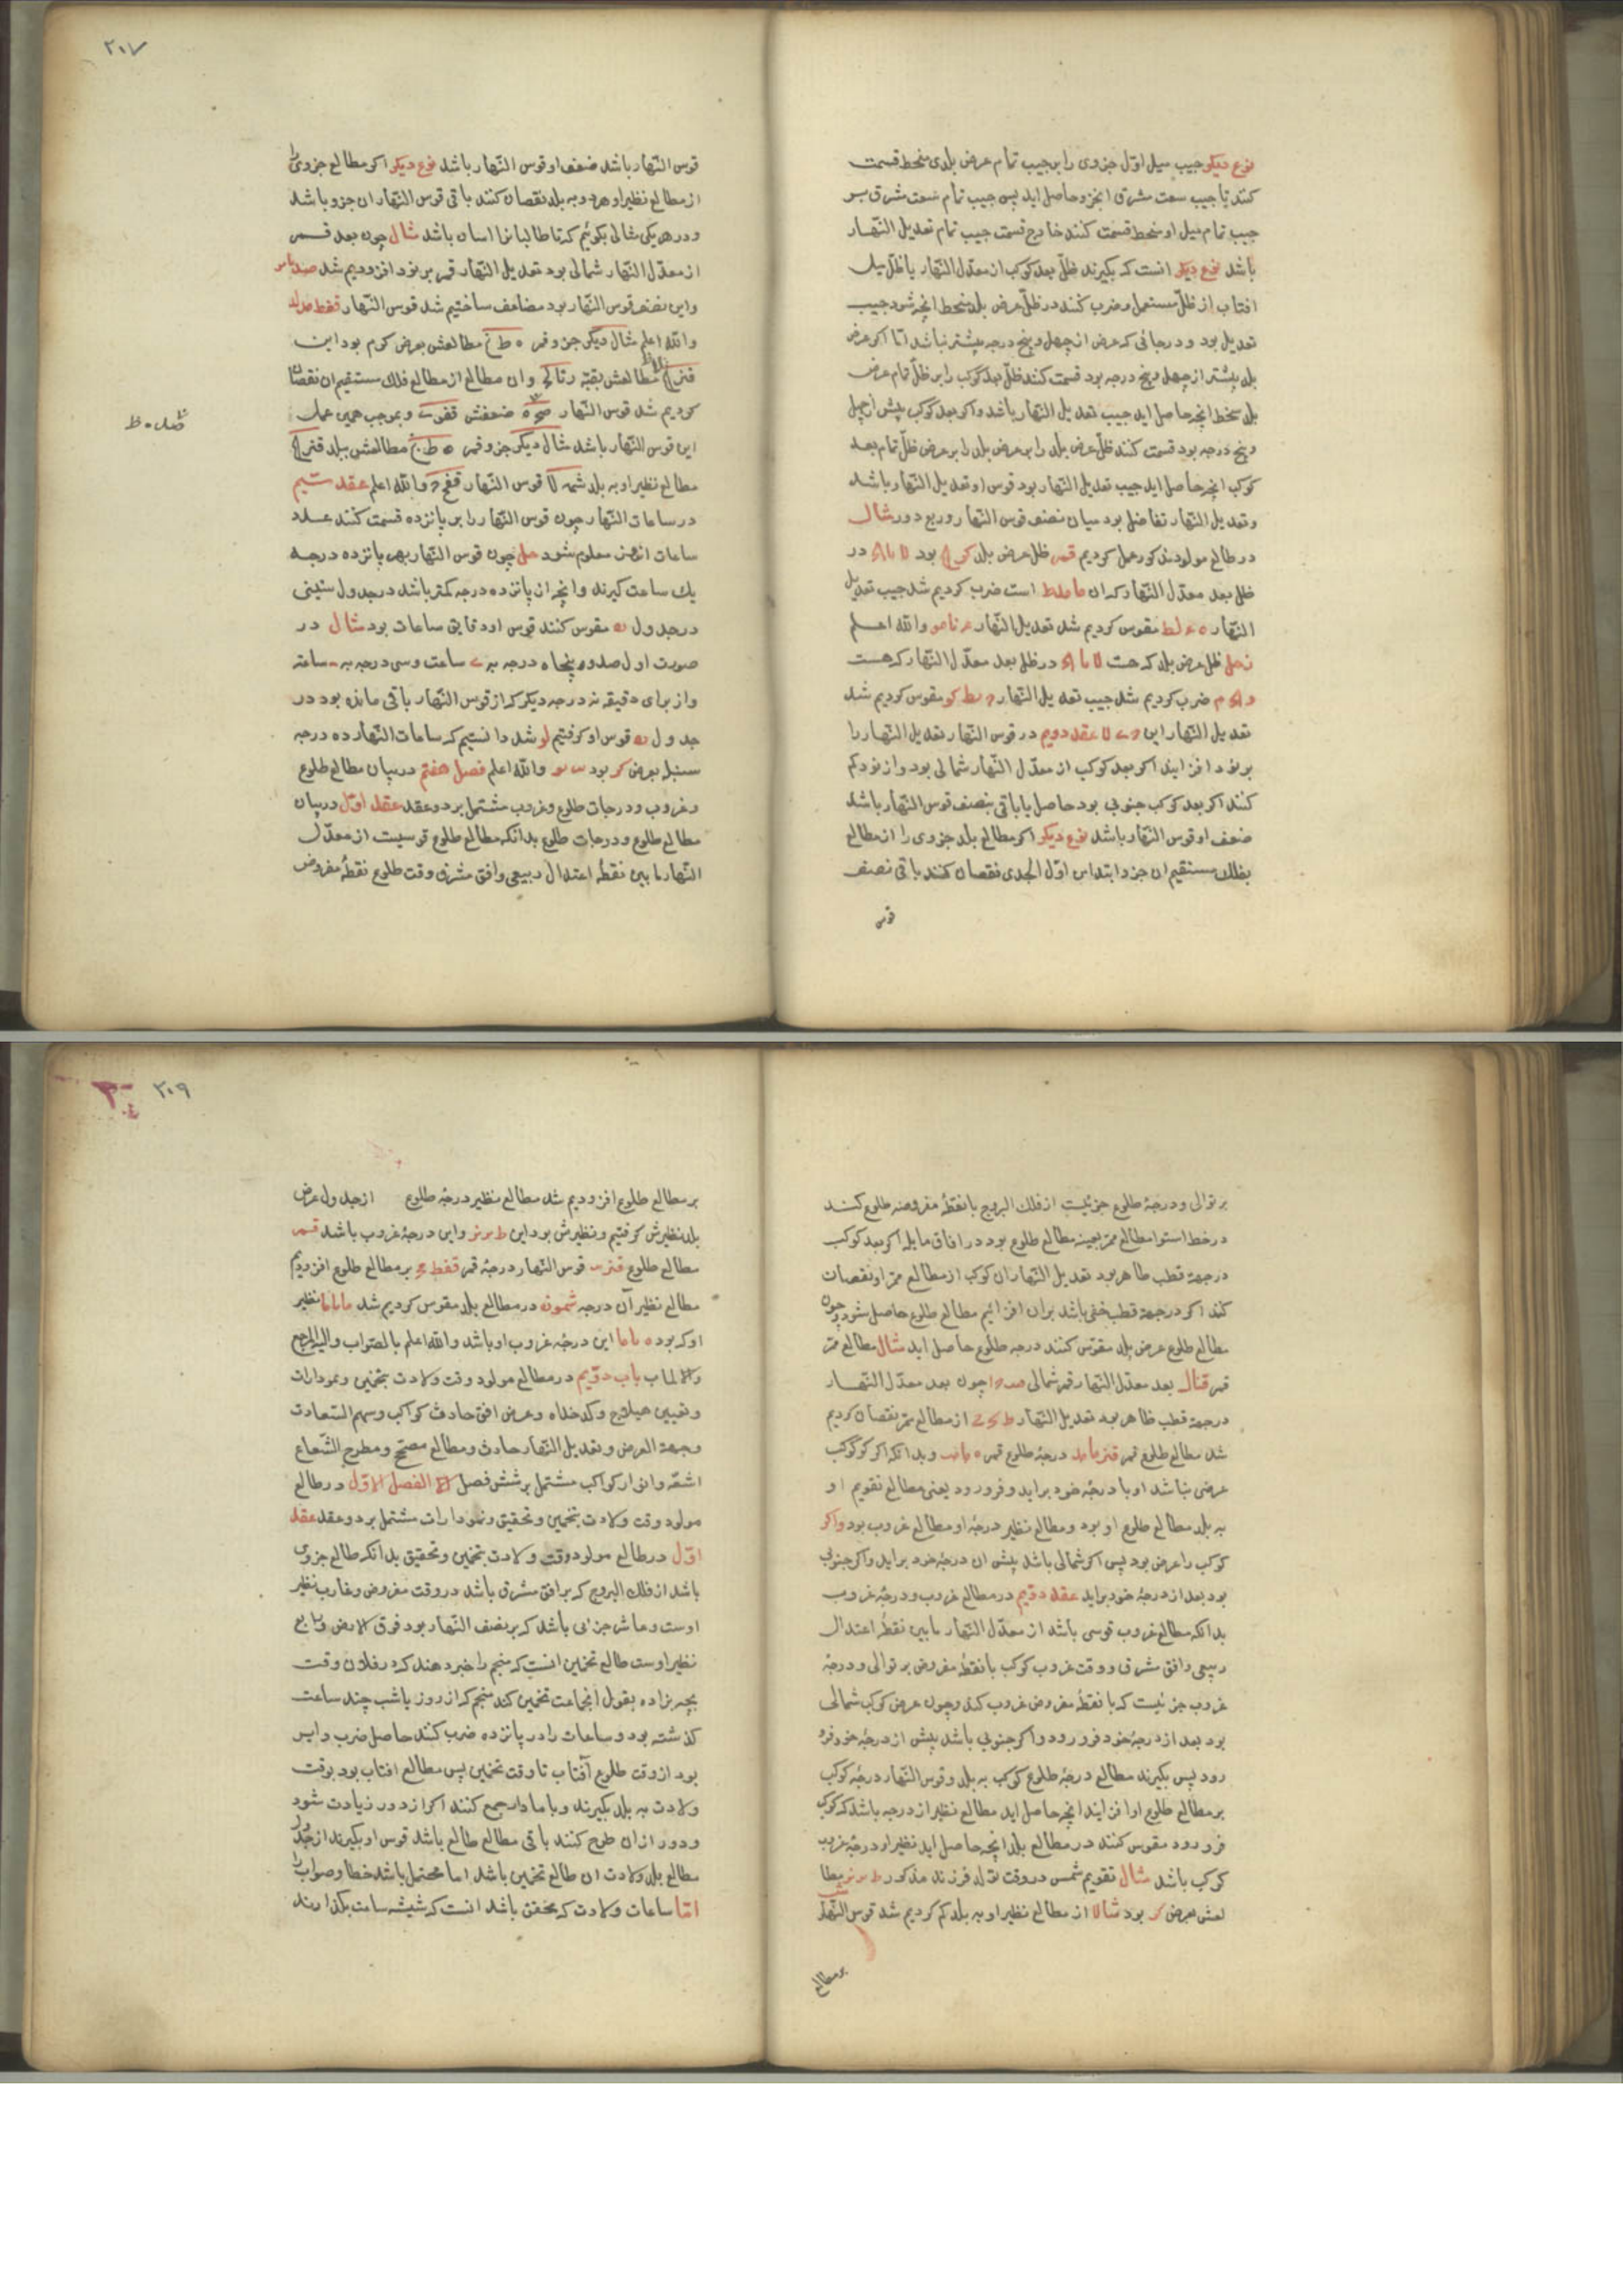 نوع دیکر جیب میل اوّل جزوی را بر جیب تمام عرض بلدی منحط قسمت
کنند تا جیب سعت مشرق انجزو حاصل اید پس جیب تمام سعت مشرق بر
جیب تمام میل او منحط قسمت کنند خارج قسمت جیب تمام تعدیل النّهار
باشد نوع دیکر انست که بکیرند ظلّ بعد کوکب از معدّل النّهار یا ظلّ میل
افتاب از ظلّ مستعمل و ضرب کنند در ظلّ عرض بلد منحط انچه شود جیب
تعدیل بود و در جائی که عرض از چهل و پنج درجه بیشتر نباشد امّا اکر عرض
بلد بیشتر از چهل و پنج درجه بود قسمت کنند ظلّ بعد کوکب را بر ظلّ تمام عرض
بلد منحط انچه حاصل اید جیب تعدیل النّهار باشد و اکر بعد کوکب بیش از چهل
و پنج درجه بود قسمت کنند ظلّ عرض بلد را بر عرض بلد را بر عرض ظلّ تمام بعد
کوکب انچه حاصل اید جیب تعدیل النّهار بود قوس او تعدیل النّهار باشد
و تعدیل النّهار تفاضل بود میان نصف قوس النّهار و ربع دور مثال
در طالع مولود مذکور عمل کردیم قمر ظل عرض بلد بود در
ظل بعد معدّل النّهار که ان است ضرب کردیم شد جیب تعدیل
النّهار مقوس کردیم شد تعدیل النّهار والله اعلم
زحل ظل عرض بلد که هست در ظل بعد معدّل النّهار که هست
ضرب کردیم شد جیب تعدیل النّهار مقوس کردیم شد
تعدیل النّهار این عقد دویم در قوس النّهار تعدیل النّهار را
بر نود افزایند اکر بعد کوکب از معدّل النّهار شمالی بود و از نود کم
کنند اکر بعد کوکب جنوبی بود حاصل یا باقی نصف قوس النّهار باشد
ضعف او قوس النّهار باشد نوع دیکر اکر مطالع بلد جزوی را از مطالع
بفلک مستقیم ان جزو ابتدا من اوّل الجدی نقصان کنند باقی نصف
قوس
۲۰۷
قوس النّهار باشد ضعف او قوس النّهار باشد نوع دیکر اکر مطالع جزوی را
از مطالع نظیر او هر دو به بلد نقصان کنند باقی قوس النّهار ان جزو باشد
و در هر یکی مثالی بکوئیم که تا طالبانرا اسان باشد مثال چون بعد قمر
از معدّل النّهار شمالی بود تعدیل النّهار قمر بر نود افزودیم شد
و این نصف قوس النّهار بود مضاعف ساختیم شد قوس النّهار
والله اعلم مثال دیکر جزو قمر مطالعش بعرض کرم بود این
مطالعش بقبّه و ان مطالع از مطالع فلک مستقیم ان نقصان
کردیم شد قوس النّهار ضعفش و بموجب همین عمل
این قوس النّهار باشد مثال دیکر جزو قمر مطالعش ببلد
مطالع نظیر او به بلد قوس النّهار والله اعلم عقد سیّم
در ساعات النّهار چون قوس النّهار را بر پانزده قسمت کنند عدد
ساعات انجزو معلوم شود عمل چون قوس النّهار بهر پانزده درجه
یک ساعت کیرند و انچه از پانزده درجه کمتر باشد در جدول ستینی
در جدول مقوس کنند قوس او دقایق ساعات بود مثال در
صورت اول صد و پنجاه درجه به ساعت و سی درجه به ساعته
و از برای دقیقه نه درجه دیکر که از قوس النّهار باقی مانده بود در
جدول قوس او کرفتیم شد دانستیم که ساعات النّهار ده درجه
سنبله بعرض بود والله اعلم فصل هفتم در بیان مطالع طلوع
و غروب و درجات طلوع و غروب مشتمل بر دو عقد عقد اوّل در بیان
مطالع طلوع و درجات طلوع بدانکه مطالع طلوع قوسیست از معدّل
النّهار ما بین نقطهٔ اعتدال ربیعی وافق مشرق وقت طلوع نقطهٔ مفروض
بر توالی و درجهٔ طلوع جزئیست از فلک البروج با نقطهٔ مفروضه طلوع کند
در خط استوا مطالع ممرّ بعینه مطالع طلوع بود در افاق مایله اکر بعد کوکب
در جهة قطب ظاهر بود تعدیل النّهار ان کوکب از مطالع ممرّ او نقصان
کند اکر در جهة قطب خفی باشد بران افزائیم مطالع طلوع حاصل شود چون
مطالع طلوع عرض بلد مقوّس کنند درجه طلوع حاصل اید مثال مطالع ممرّ
قمر بعد معدّل النّهار قمر شمالی چون بعد معدّل النّهار
در جهة قطب ظاهر بود تعدیل النّهار از مطالع ممرّ نقصان کردیم
شد مطالع طلوع قمر درجهٔ طلوع قمر و بدانکه اکر کوکب
عرضی نباشد او با درجهٔ خود براید و فرو رود یعنی مطالع تقویم او
به بلد مطالع طلوع او بود و مطالع نظیر درجهٔ او مطالع غروب بود و اکر
کوکب را عرض بود پس اکر شمالی باشد پیش ان درجهٔ خود براید و اکر جنوبی
بود بعد از درجهٔ خود براید عقد دوّیم در مطالع غروب و درجهٔ غروب
بدانکه مطالع غروب قوسی باشد از معدّل النّهار ما بین نقطهٔ اعتدال
ربیعی و افق مشرق و وقت غروب کوکب با نقطهٔ مفروض بر توالی و درجهٔ
غروب جزئیست که با نقطهٔ مفروض غروب کند و چون عرض کوکب شمالی
بود بعد از درجهٔ خود فرو رود و اکر جنوبی باشد پیش از درجهٔ خود فرو
رود پس بکیرند مطالع درجهٔ طلوع کوکب به بلد و قوس النّهار درجهٔ کوکب
بر مطالع طلوع او افزایند انچه حاصل اید مطالع نظیر از درجه باشد که کوکب
فرو رود مقوس کنند در مطالع بلد انچه حاصل اید نظیر او درجهٔ غروب
کوکب باشد مثال تقویم شمس در وقت تولد فرزند مذکور مطا
لعش بعرض بود از مطالع نظیر او به بلد کم کردیم شد قوس النّهار
بر مطالع
۲۰۹
بر مطالع طلوع افزودیم شد مطالع نظیر درجهٔ طلوع از جدول عرض
بلد نظیرش کرفتیم و نظیرش بود این و این درجهٔ غروب باشد قمر
مطالع طلوع قوس النّهار درجهٔ قمر بر مطالع طلوع افزودیم
مطالع نظیر آن درجه در مطالع بلد مقوس کردیم شد نظیر
او که بود این درجهٔ غروب او باشد والله اعلم بالصّواب والیه المرجع
والماب باب دوّیم در مطالع مولود وقت ولادت بتخمین و نمودارات
و تعیین هیلاج و کدخداه و عرض افق حادث کواکب و سهم السّعادت
و جهة العرض و تعدیل النّهار حادث و مطالع مصحّح و مطرح الشّعاع
اشعّه و انوار کواکب مشتمل بر شش فصل الفصل الاوّل در طالع
مولود وقت ولادت بتخمین و تحقیق و نمودارات مشتمل بر دو عقد عقد
اوّل در طالع مولود وقت ولادت بتخمین و تحقیق بدانکه طالع جزوی
باشد از فلک البروج که بر افق مشرق باشد در وقت مفروض و غارب نظیر
اوست و عاشر جزئی باشد که بر نصف النّهار بود فوق الارض و رابع
نظیر اوست طالع تخمین انست که منجم را خبر دهند که در فلان وقت
بچه بزاده بقول انجماعت تخمین کند منجم که از روز یا شب چند ساعت
کذشته بود و ساعات را در پانزده ضرب کند حاصل ضرب دایر
بود از وقت طلوع آفتاب تا وقت تخمین پس مطالع افتاب بود بوقت
ولادت به بلد بکیرند و با ما دار جمع کنند اکر از دور زیادت شود
و دور ازان طرح کنند باقی مطالع طالع باشد قوس او بکیرند از جدول
مطالع بلد ولادت ان طالع تخمین باشد اما محتمل باشد خطا و صواب را
امّا ساعات ولادت که محقق باشد انست که شیشه ساعت بکذارند